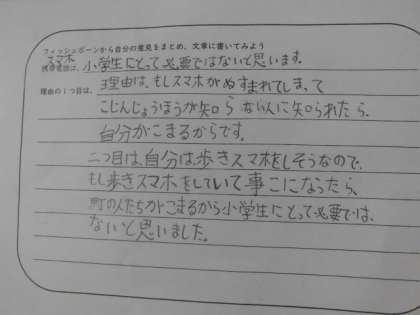 フィッシュボーンから自分の意見をまとめ、文章に書いてみよう
スマホ
携帯電話は、小学生にとって必要ではないと思います。
理由の1つ目は、理由は、もしスマホがぬすまれてしまって
こじんじょうほうが知らない人に知られたら、
自分がこまるからです。
二つ目は、自分は歩きスマホをしそうなので、
もし歩きスマホをしていて事こになったら、
町の人たちがこまるから小学生にとって必要では、
ないと思いました。